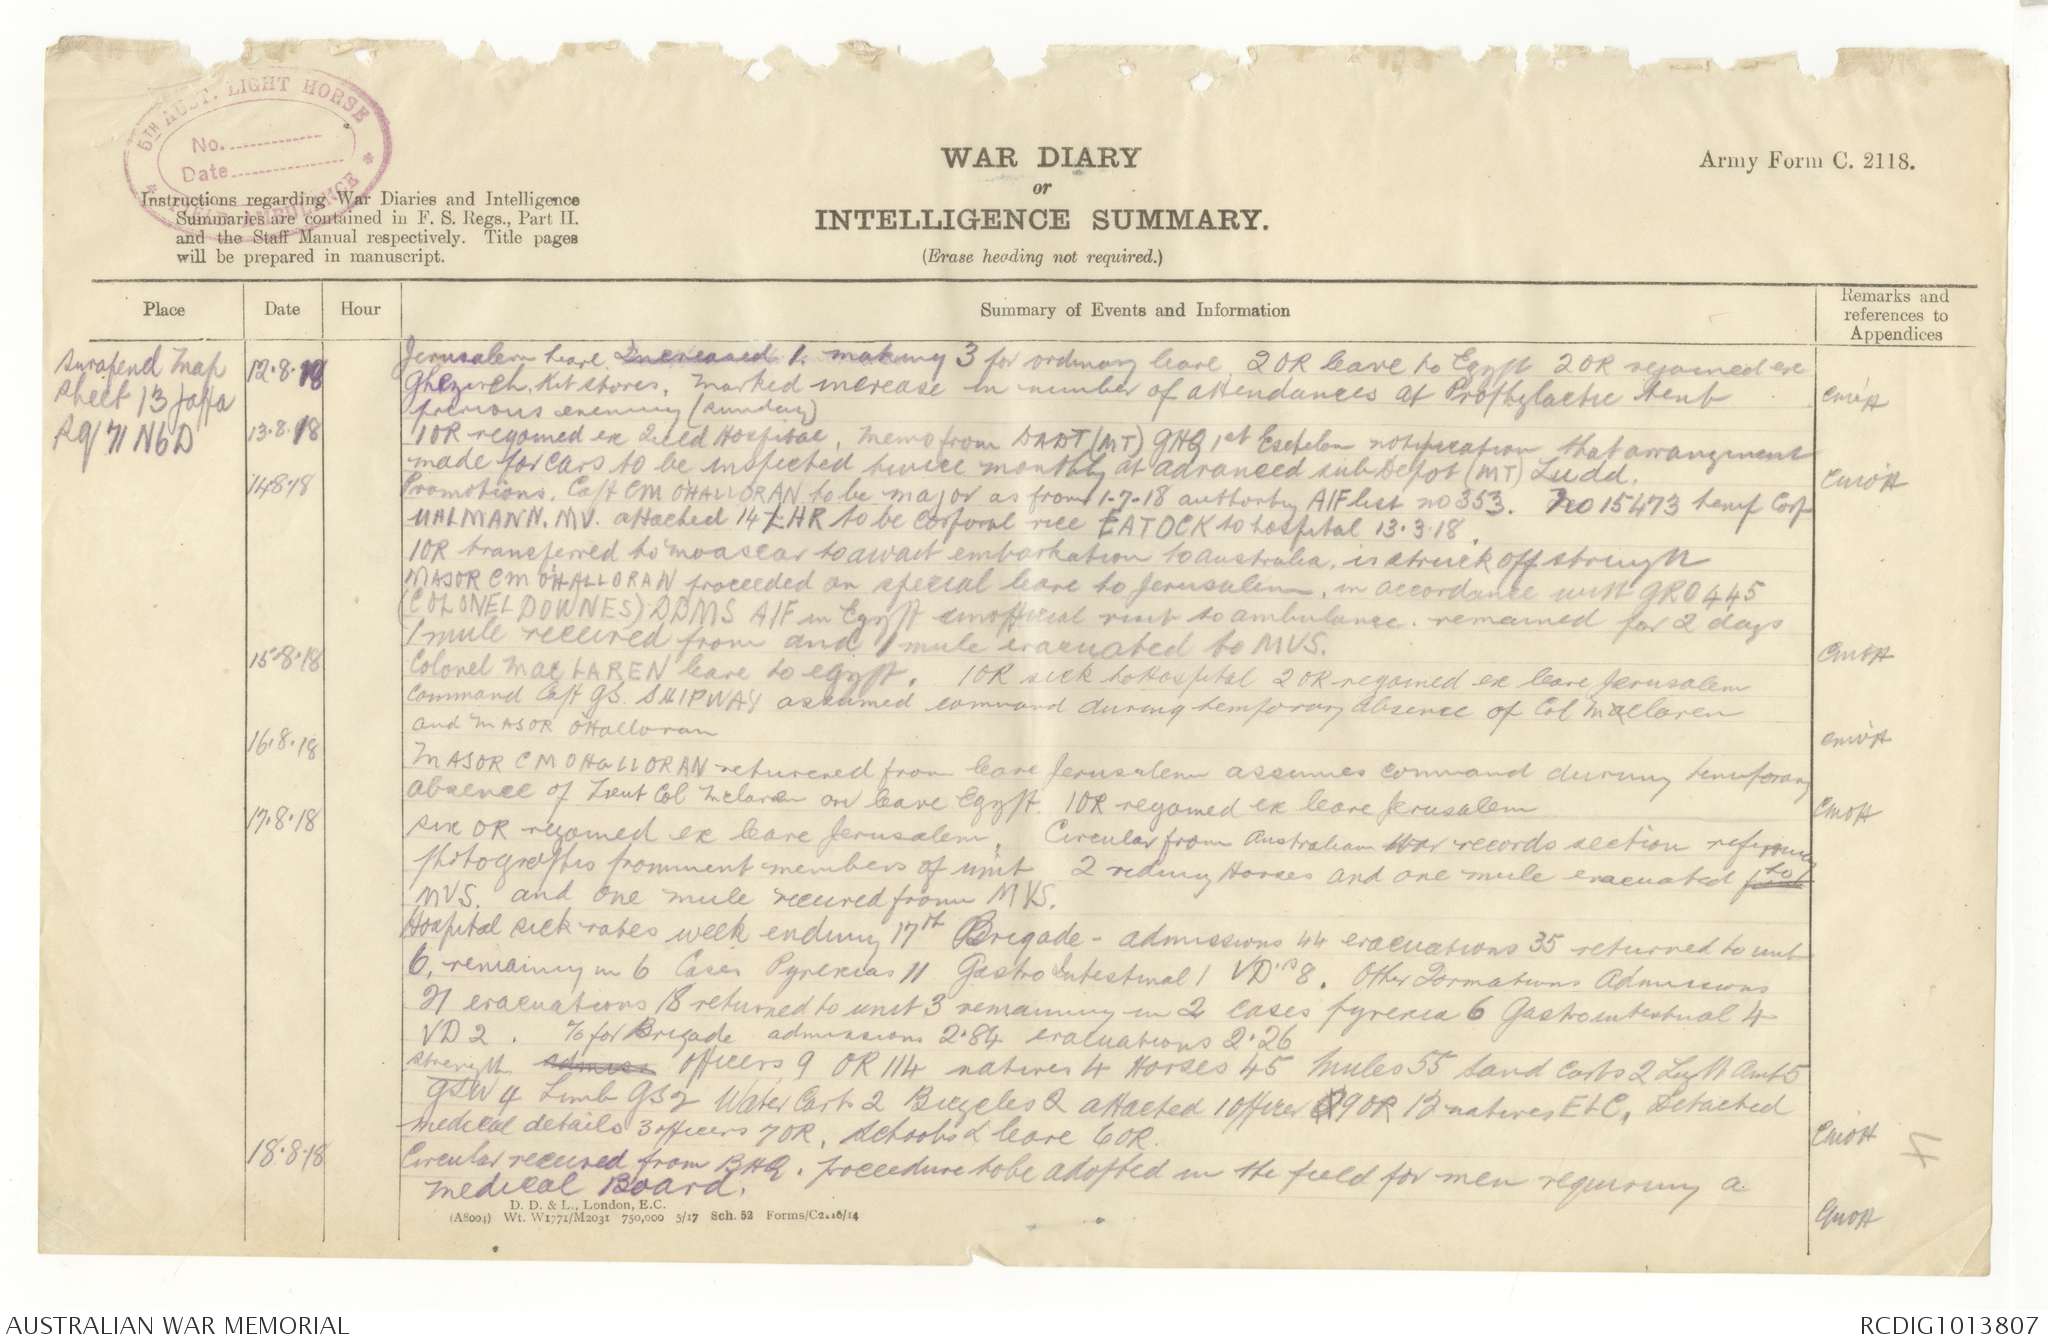 5TH AUST. LIGHT HORSE
No.
Date
FIELD AMBULANCE
WAR DIARY
or
INTELLIGENCE SUMMARY.
(Erase heading not required.)
Army Form C. 2118.
Instructions regarding War Diaries and Intelligence
Summaries are contained in F. S. Regs., Part II.
and the Staff Manual respectively. Title pages
will be prepared in manuscript.
Place Date Hour Summary of Events and Information Remarks and references to Appendices
Surafend Map
Sheet 13 Jaffa
Sq 71 N6D
12.8.18 Jerusalem leave Increased 1. making 3 for ordinary leave. 2 OR leave to Egypt 2 OR rejoined ex
Ghezireh. Kit stores. Marked increase in number of attendances at Prophylactic tent
previous evening (Sunday) CMO'H
13.8.18 1 OR rejoined ex Field Hospital. Memo from DADT (MT) GHQ 1st Echelon notification that arrangement
made for cars to be inspected twice monthly at advanced sub Depot (MT) Ludd. CMO'H
14.8.18 Promotions. Capt CM O'HALLORAN to be major as from 1-7-18 authority AIF list no 353. No 15473 temp Corp
HALMANN. MV. attached 14 LHR to be Corporal vice EATOCK to hospital 13.3.18.
1 OR transferred to Moascar to await embarkation to Australia. is struck off strength
MAJOR CM O'HALLORAN proceeded on special leave to Jerusalem, in accordance with GRO 445
(COLONEL DOWNES) DDMS AIF in Egypt unofficial visit to ambulance. remained for 2 days
1 mule received from and 1 mule evacuated to MVS. CMO'H
15.8.18 Colonel MacLAREN leave to Egypt. 1 OR sick to Hospital 2 OR rejoined ex leave Jerusalem
Command Capt GS. SHIPWAY assumed command during temporary absence of Col Maclaren
and MAJOR O'Halloran CMO'H
16.8.18 MAJOR CM O'HALLORAN returned from leave Jerusalem assumes command during temporary
absence of Lieut Col Mclaren on leave Egypt. 1 OR rejoined ex leave Jerusalem CMO'H
17.8.18 Six OR rejoined ex leave Jerusalem. Circular from Australian War records section referring
photographs prominent members of unit 2 riding Horses and one mule evacuated from to
MVS. and one mule received from MVS.
Hospital sick rates week ending 17th Brigade - admissions 44 evacuations 35 returned to unit
6, remaining in 6 Cases Pyrexias 11 Gastro Intestinal 1 VD's 8. Other Formations Admissions
21 evacuations 18 returned to unit 3 remaining in 2 cases pyrexia 6 Gastrointestinal 4
VD 2. % for Brigade admissions 2.84 evacuations 2.26
Strength admiss officers 9 OR 114 natives 4 Horses 45 Mules 55 Sand Carts 2 Light Amb 5
GSW 4 Limb GS 2 Water Carts 2 Bicycles 2 attached 1 officer 29 OR 12 natives ELC. Detached
medical details 3 officers 7 OR. Schools & leave 6 OR. CMO'H
18.8.18 Circular received from BHQ. procedure to be adopted in the field for men requiring a
medical Board. CMO'H
D. D. & L., London, E.C.
(A8004) Wt. W1771/M2031 750,000 5/17 Sch. 52 Forms/C2118/14
AUSTRALIAN WAR MEMORIAL
RCDIG1013807